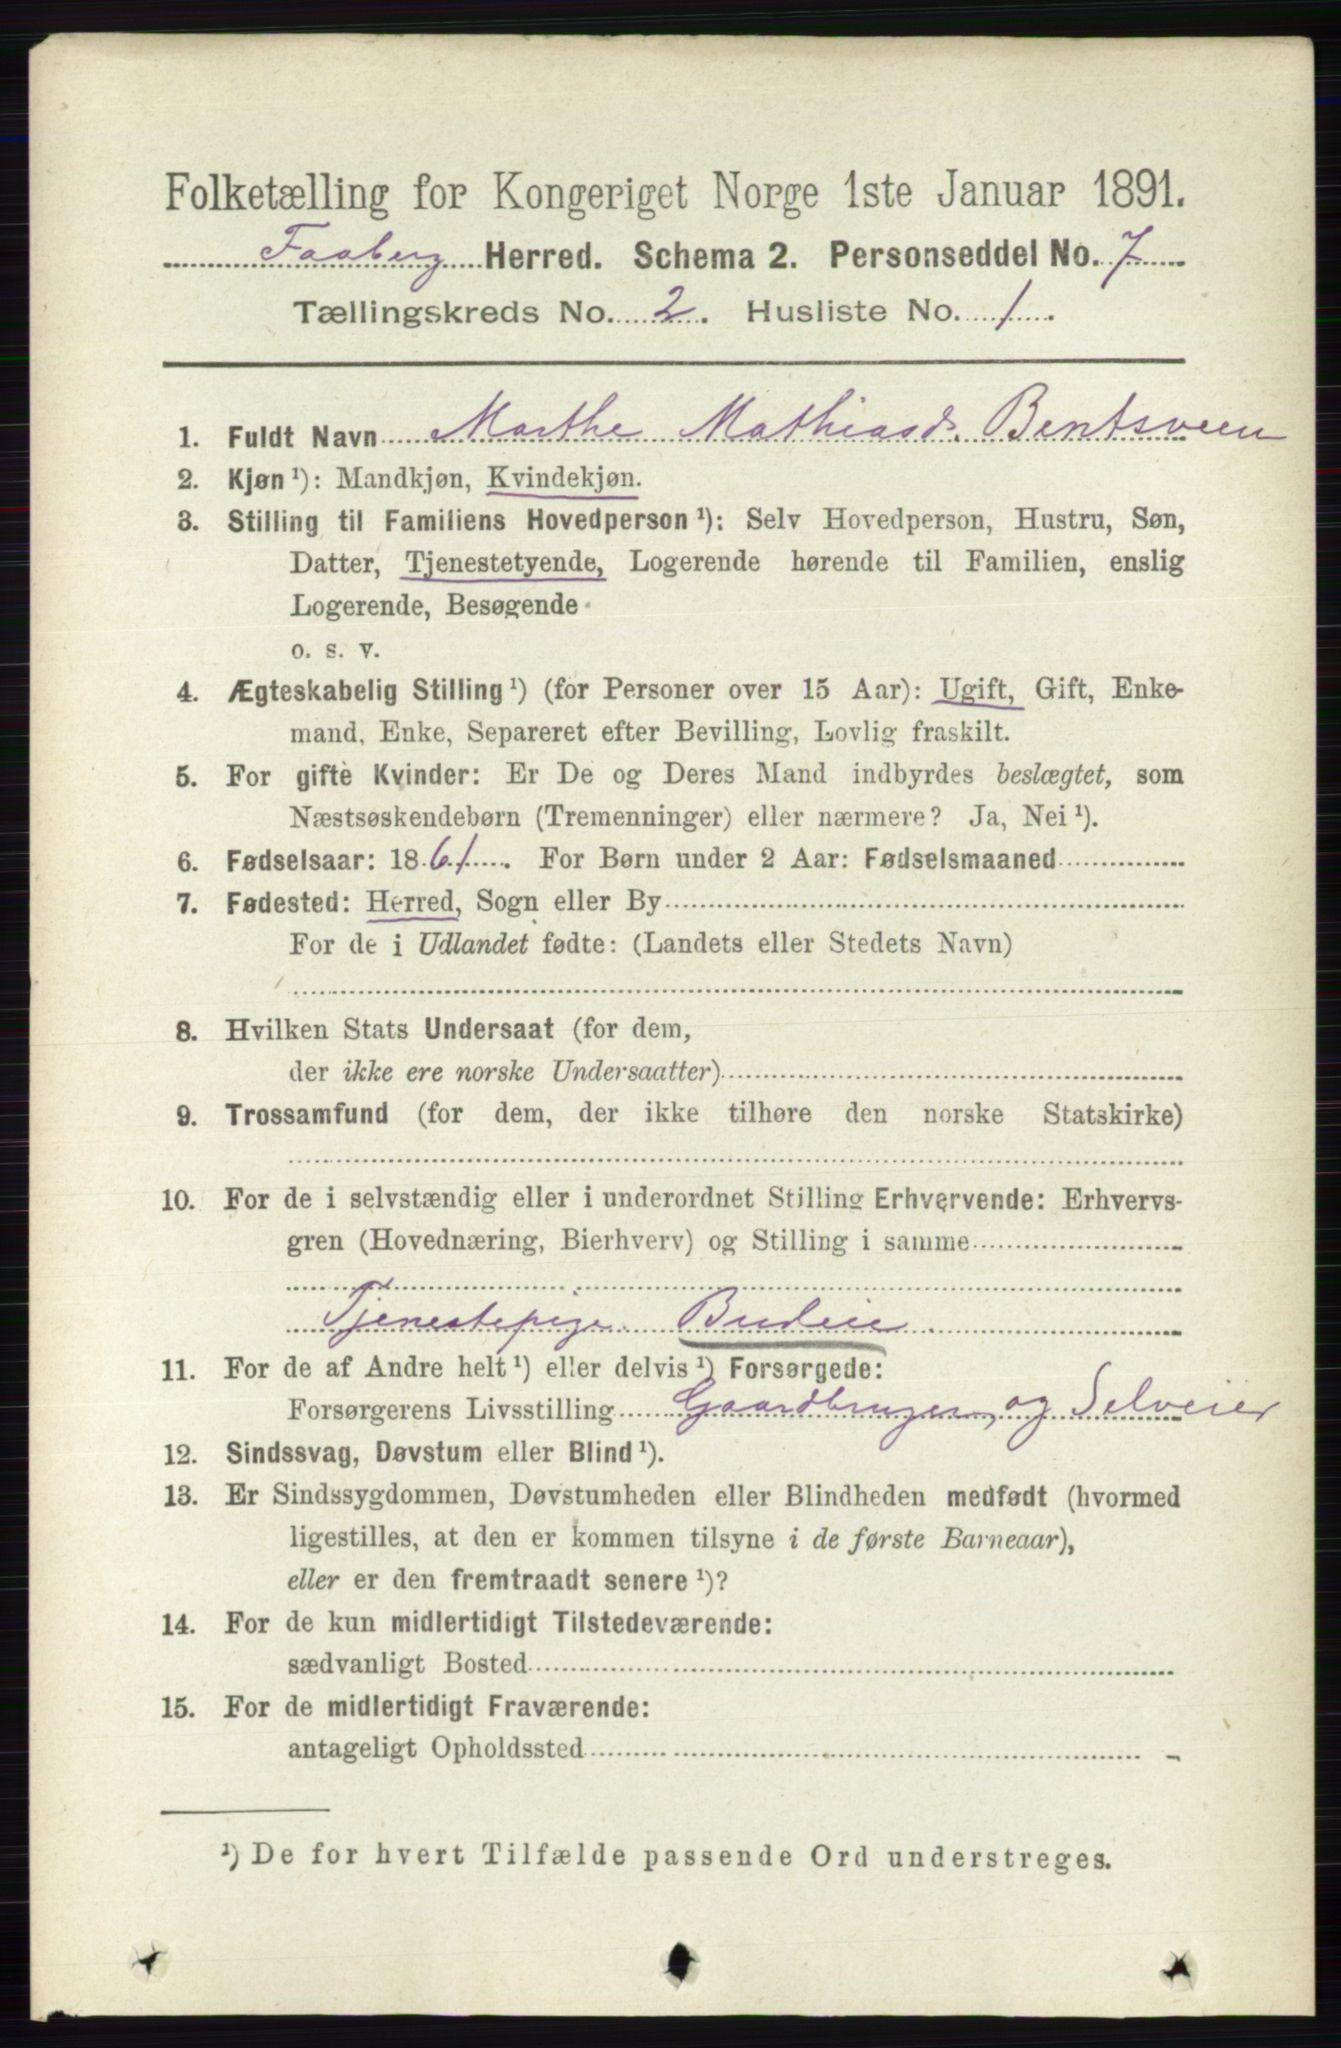 Folketælling for Kongeriget Norge 1ste Januar 1891.
Faaberg Herred. Schema 2. Personseddel No. 7
Tællingskreds No. 2. Husliste No. 1.
1. Fuldt Navn Marthe Mathiasd. Bentsveen
2. Kjøn ¹): Mandkjøn, Kvindekjøn.
3. Stilling til Familiens Hovedperson ¹): Selv Hovedperson, Hustru, Søn,
Datter, Tjenestetyende, Logerende hørende til Familien, enslig
Logerende, Besøgende
o. s. v.
4. Ægteskabelig Stilling ¹) (for Personer over 15 Aar): Ugift, Gift, Enke-
mand, Enke, Separeret efter Bevilling, Lovlig fraskilt.
5. For gifte Kvinder: Er De og Deres Mand indbyrdes beslægtet, som
Næstsøskendebørn (Tremenninger) eller nærmere? Ja, Nei ¹).
6. Fødselsaar: 1861. For Børn under 2 Aar: Fødselsmaaned
7. Fødested: Herred, Sogn eller By
For de i Udlandet fødte: (Landets eller Stedets Navn)
8. Hvilken Stats Undersaat (for dem,
der ikke ere norske Undersaatter)
9. Trossamfund (for dem, der ikke tilhøre den norske Statskirke)
10. For de i selvstændig eller i underordnet Stilling Erhvervende: Erhvervs-
gren (Hovednæring, Bierhverv) og Stilling i samme
Tjenestepige Budeie
11. For de af Andre helt ¹) eller delvis ¹) Forsørgede:
Forsørgerens Livsstilling Gaardbruger og Selveier
12. Sindssvag, Døvstum eller Blind ¹).
13. Er Sindssygdommen, Døvstumheden eller Blindheden medfødt (hvormed
ligestilles, at den er kommen tilsyne i de første Barneaar),
eller er den fremtraadt senere ¹)?
14. For de kun midlertidigt Tilstedeværende:
sædvanligt Bosted
15. For de midlertidigt Fraværende:
antageligt Opholdssted
¹) De for hvert Tilfælde passende Ord understreges.